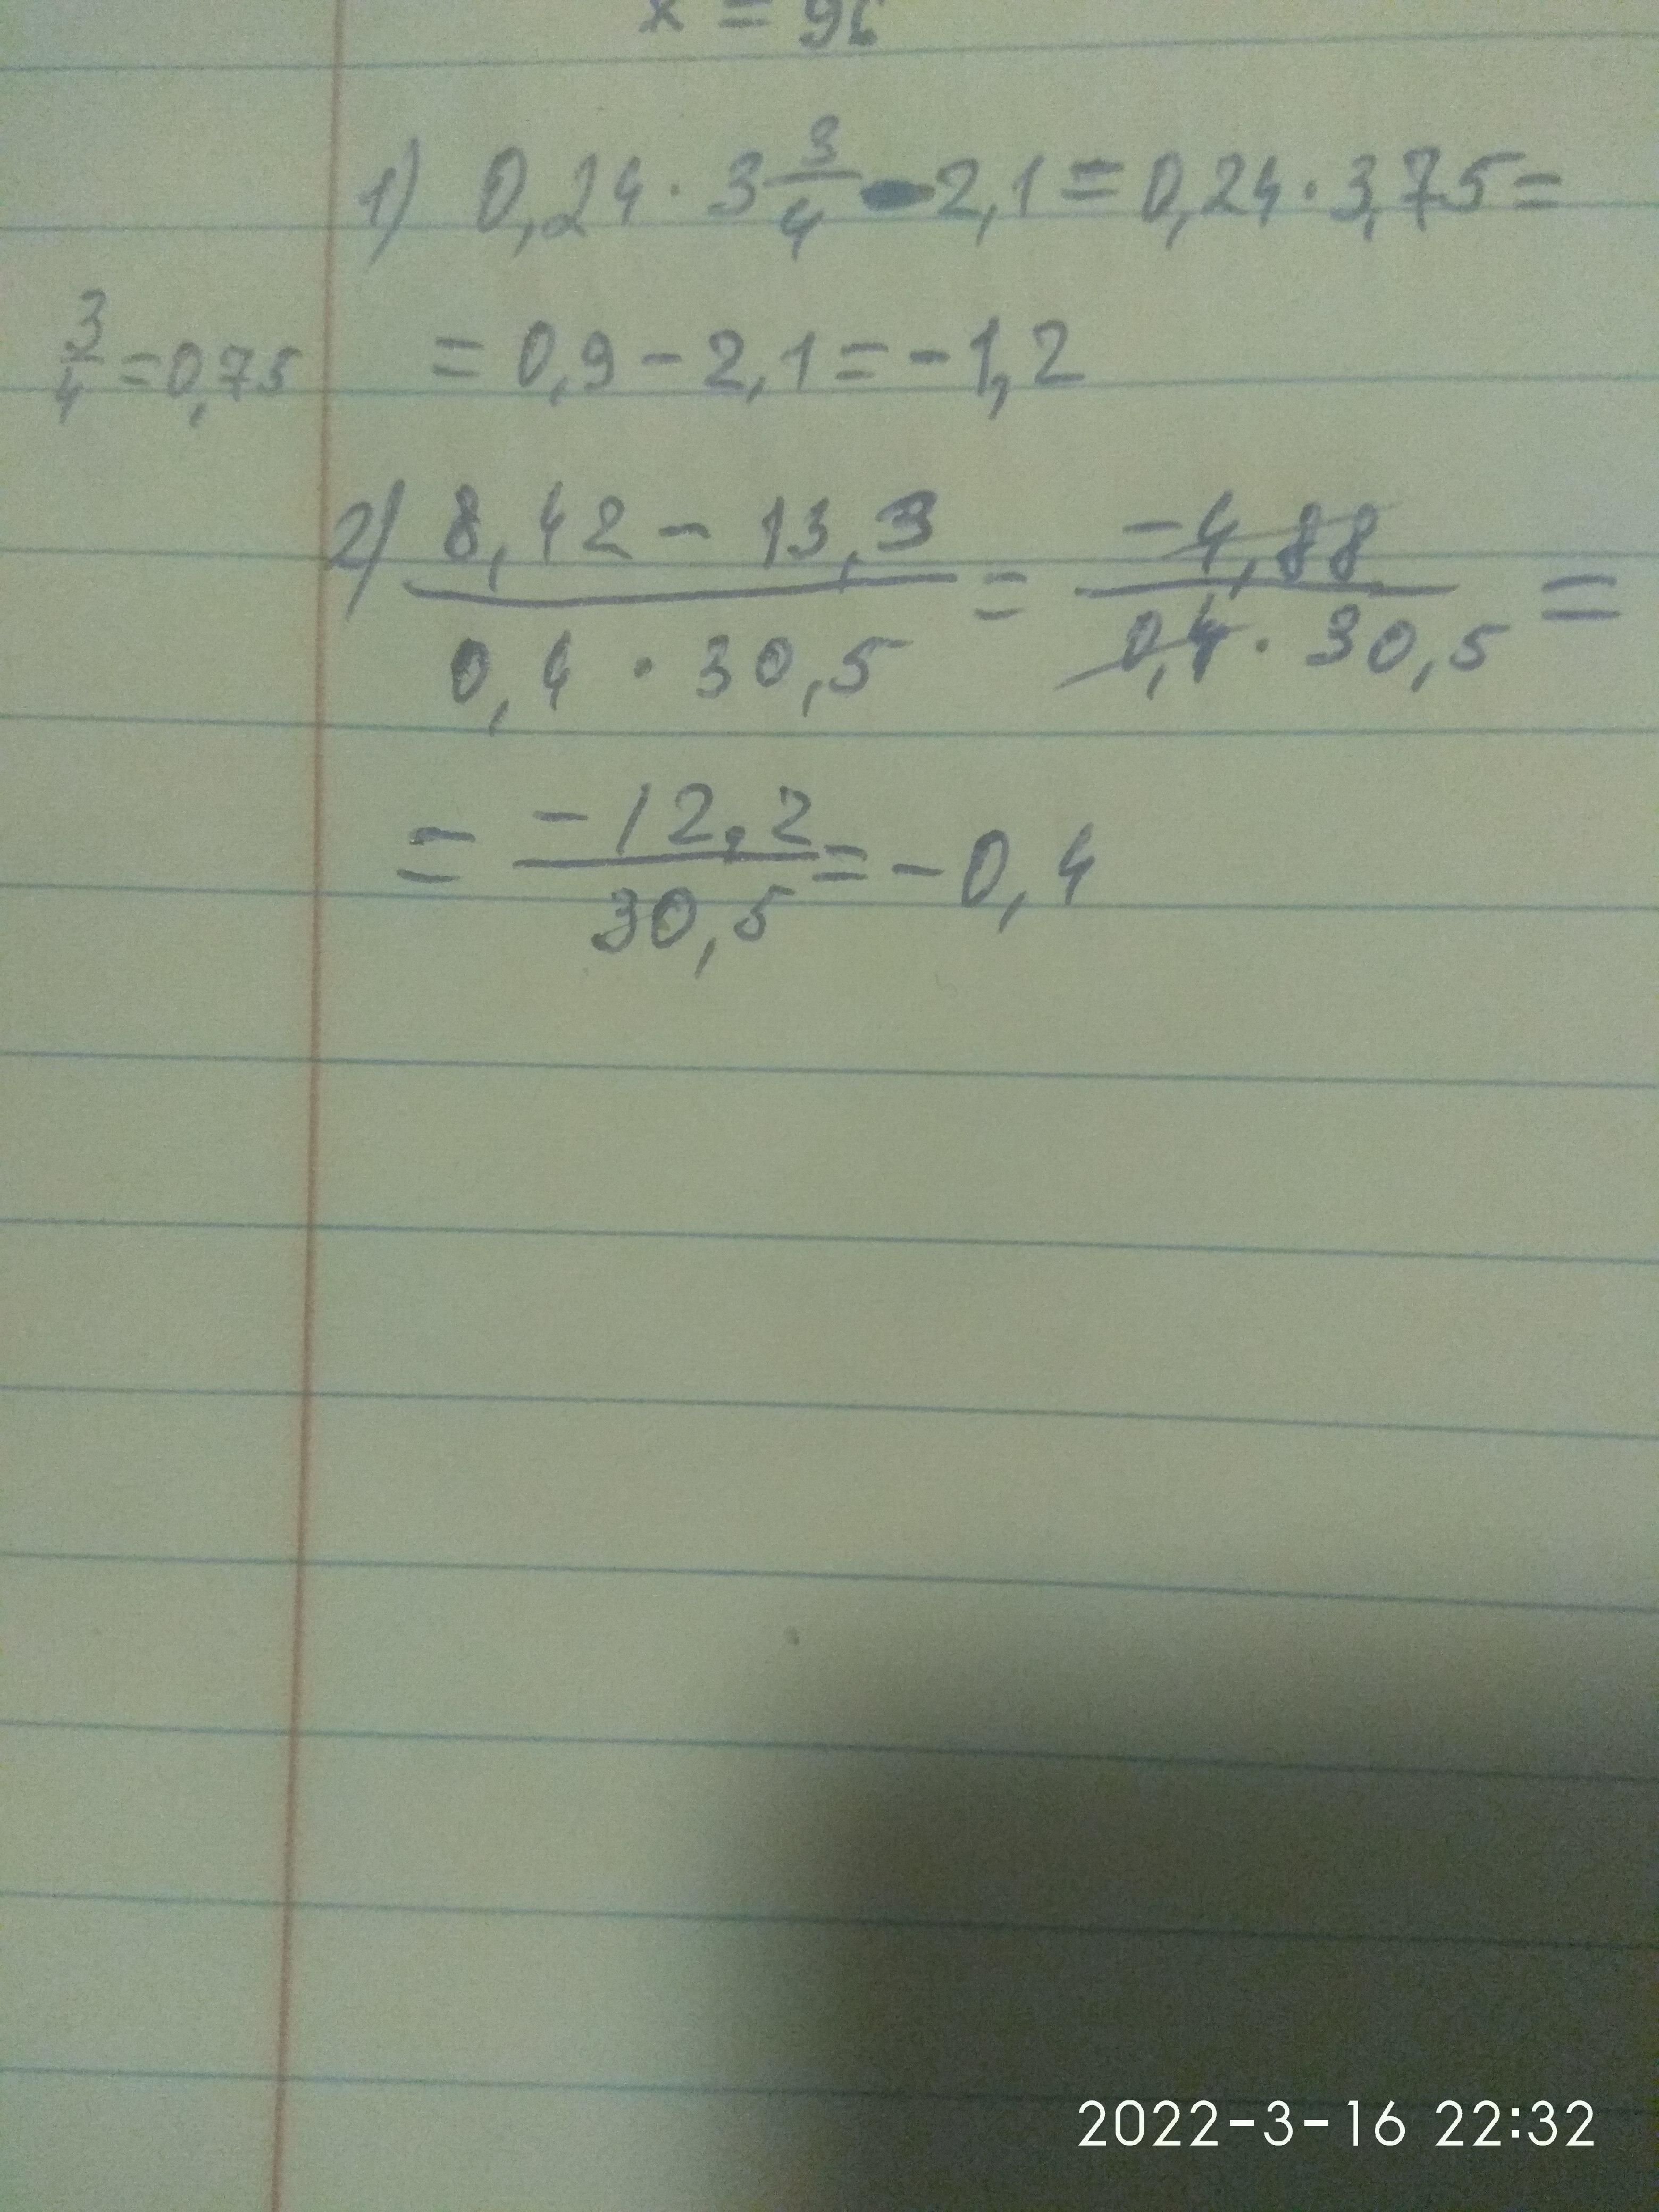 x = 96
1) 0,24 · 3 3/4 - 2,1 = 0,24 · 3,75 =
3/4 = 0,75
= 0,9 - 2,1 = - 1,2
2) (8,42 - 13,3)/(0,4 · 30,5) = (-4,88)/(0,4 · 30,5) =
= (-12,2)/(30,5) = - 0,4
2022-3-16 22:32